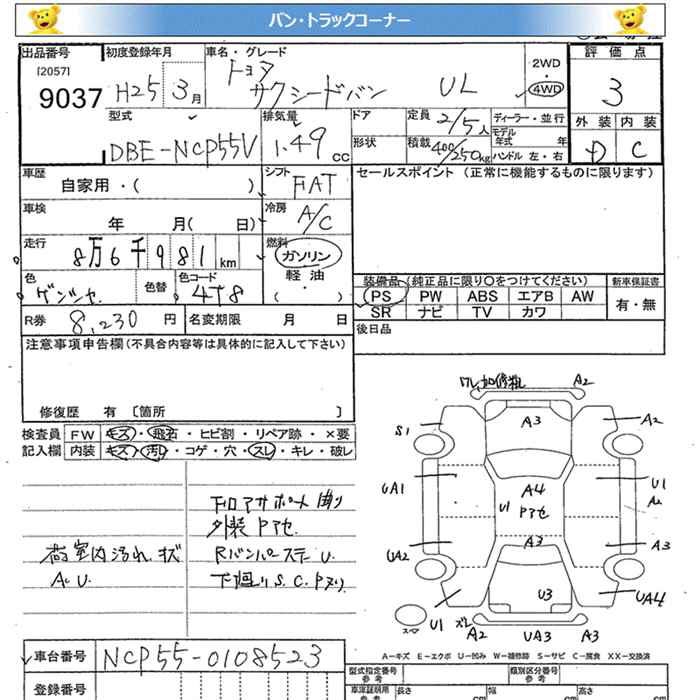 バン・トラックコーナー
出品番号 初度登録年月 車名・グレード 評価点
[2057]
9037 H25 3月 トヨタ 2WD
サクシードバン UL 4WD 3
型式 排気量 ドア 定員 2/5人 ディーラー・並行 外装 内装
DBE-NCP55V 1.49cc 形状 積載 400/250kg モデル年式 年 D C
ハンドル 左・右
車歴 シフト セールスポイント (正常に機能するものに限ります)
自家用・( ) FAT
車検 冷房
年 月( 日) A/C
走行 燃料
8万6千981km ガソリン
軽油
色 色替 色コード ・ 装備品(純正品に限り〇をつけてください) 新車保証書
4T8 ( ) PS PW ABS エアB AW 有・無
SR ナビ TV カワ
R券 8,230円 名変期限 月 日 後日品
注意事項申告欄(不具合内容等は具体的に記入して下さい)
修復歴 有 [箇所 ]
検査員 FW キズ・飛石・ヒビ割・リペア跡・×要
記入欄 内装 キズ・汚レ・コゲ・穴・スレ・キレ・破レ
A2
A3 A2
S1
UA1 A4 U1
U1 Pアセ
A3 A3
UA2
U3 UA4
スペア U1 A2 UA3 A3
外装Pアセ
荷室内汚れ、
A.U.
A-キズ E-エクボ U-凹み W-補修跡 S-サビ C-腐食 XX-交換済
車台番号 NCP55-0108523
登録番号
型式指定番号 参考 類別区分番号 参考
車庫証明用 参考 長さ cm 幅 cm 高さ cm